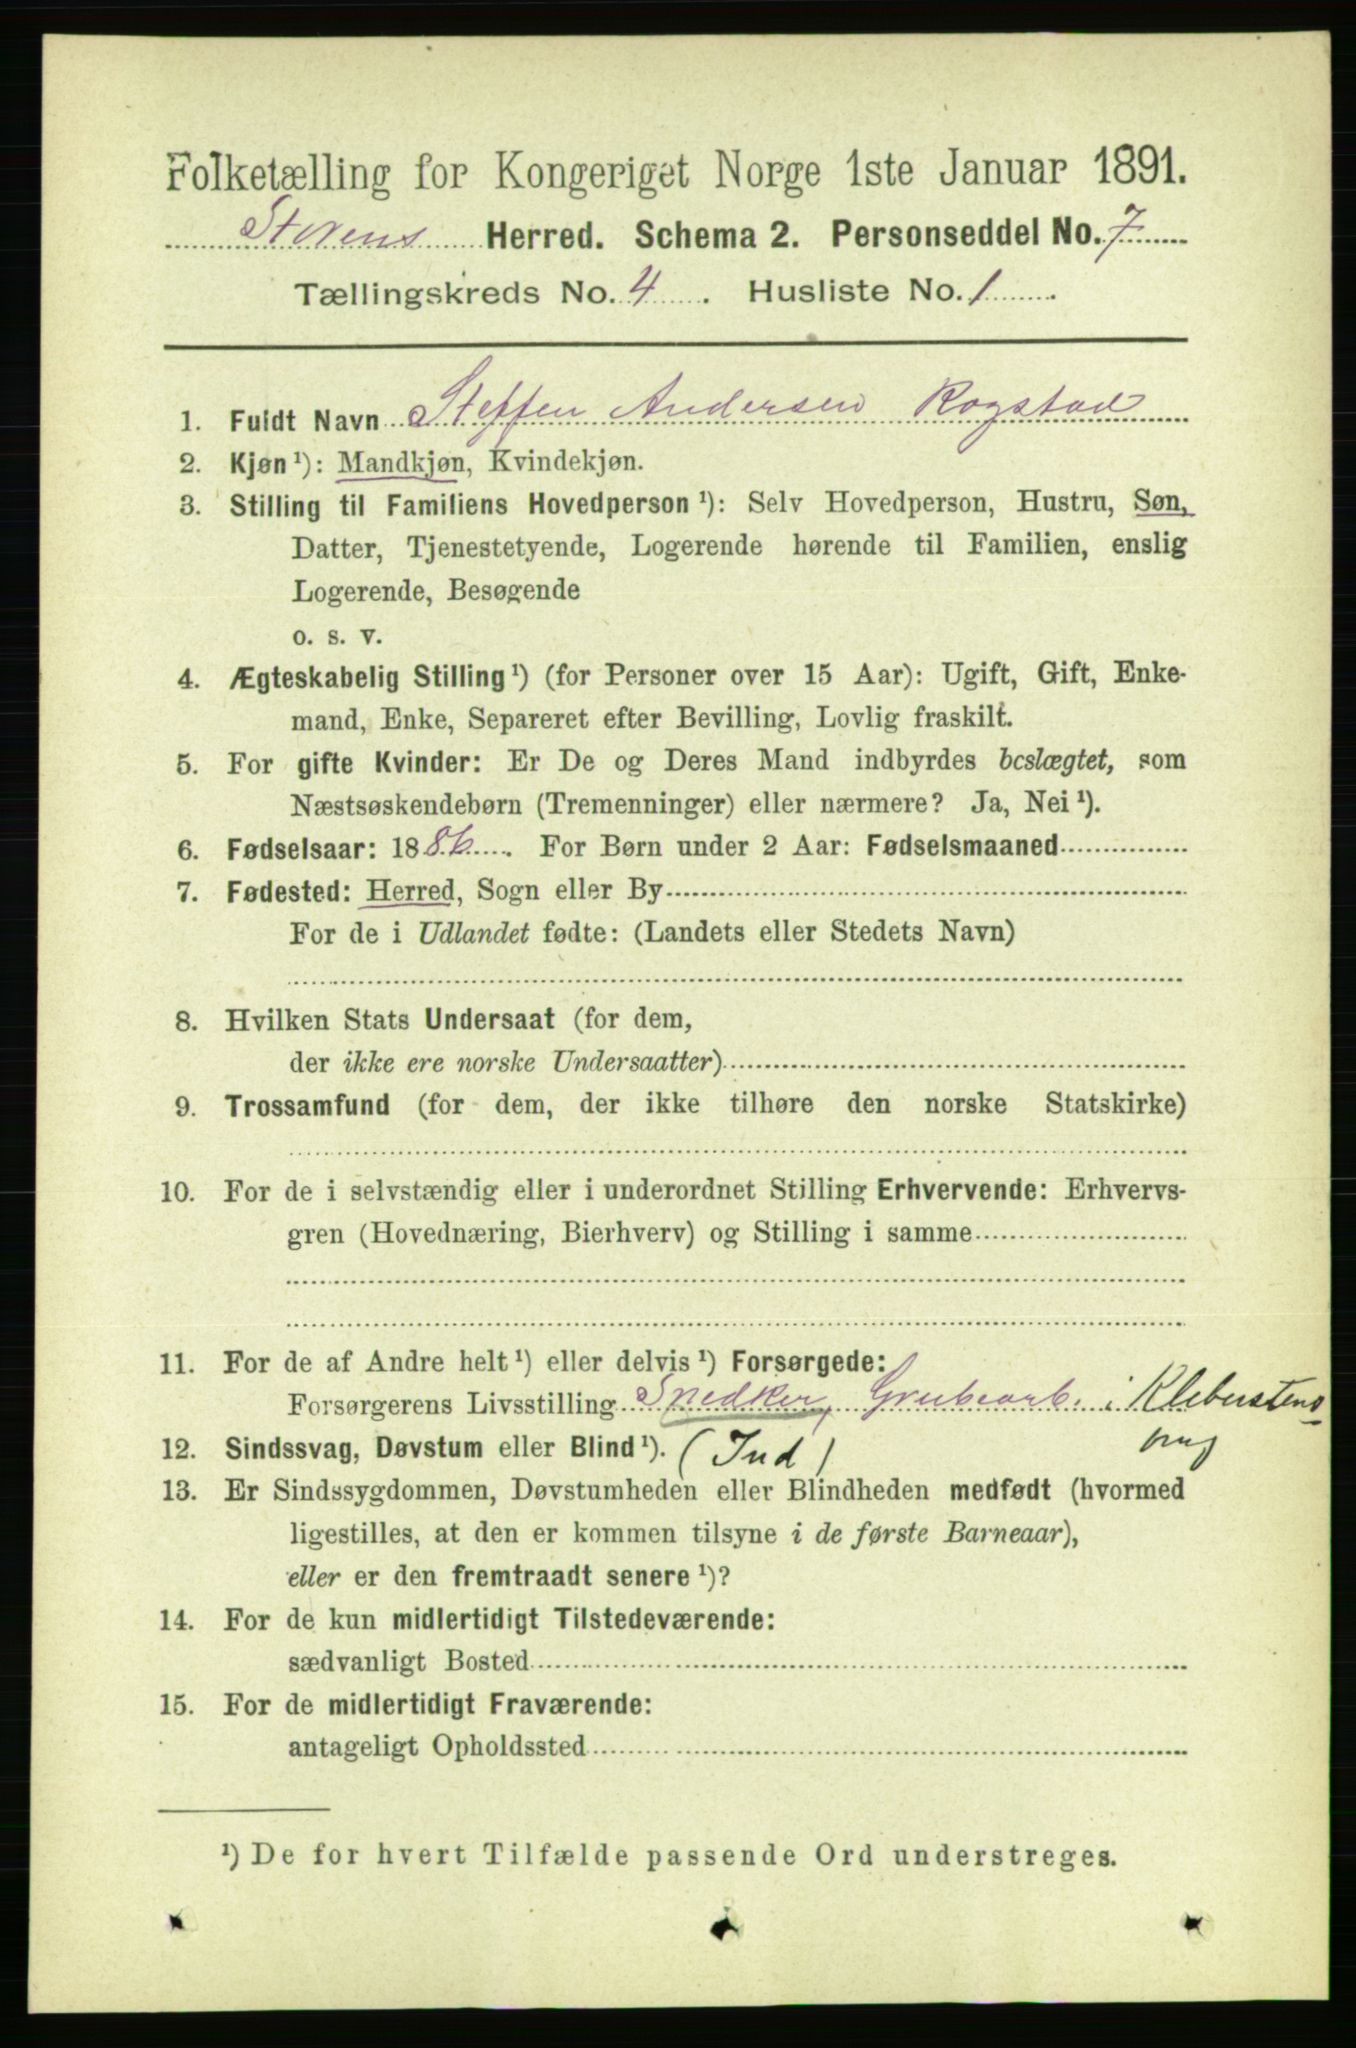 Folketælling for Kongeriget Norge 1ste Januar 1891.
Størens Herred. Schema 2. Personseddel No. 7
Tællingskreds No. 4. Husliste No. 1.
1. Fuldt Navn Steffen Andersen Rogstad
2. Kjøn ¹): Mandkjøn, Kvindekjøn.
3. Stilling til Familiens Hovedperson ¹): Selv Hovedperson, Hustru, Søn,
Datter, Tjenestetyende, Logerende hørende til Familien, enslig
Logerende, Besøgende
o. s. v.
4. Ægteskabelig Stilling ¹) (for Personer over 15 Aar): Ugift, Gift, Enke-
mand, Enke, Separeret efter Bevilling, Lovlig fraskilt.
5. For gifte Kvinder: Er De og Deres Mand indbyrdes beslægtet, som
Næstsøskendebørn (Tremenninger) eller nærmere? Ja, Nei ¹).
6. Fødselsaar: 1886. For Børn under 2 Aar: Fødselsmaaned
7. Fødested: Herred, Sogn eller By
For de i Udlandet fødte: (Landets eller Stedets Navn)
8. Hvilken Stats Undersaat (for dem,
der ikke ere norske Undersaatter)
9. Trossamfund (for dem, der ikke tilhøre den norske Statskirke)
10. For de i selvstændig eller i underordnet Stilling Erhvervende: Erhvervs-
gren (Hovednæring, Bierhverv) og Stilling i samme
11. For de af Andre helt ¹) eller delvis ¹) Forsørgede:
Forsørgerens Livsstilling Snedker, Grubearb. i Kleberstens
brug
12. Sindssvag, Døvstum eller Blind ¹). (Ind)
13. Er Sindssygdommen, Døvstumheden eller Blindheden medfødt (hvormed
ligestilles, at den er kommen tilsyne i de første Barneaar),
eller er den fremtraadt senere ¹)?
14. For de kun midlertidigt Tilstedeværende:
sædvanligt Bosted
15. For de midlertidigt Fraværende:
antageligt Opholdssted
¹) De for hvert Tilfælde passende Ord understreges.